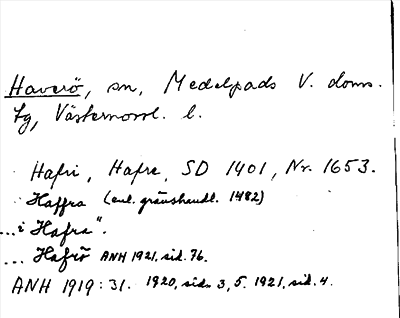 Haverö, sn, Medelpads V. doms.
tg, Västernorrl. l.
Hafri, Hafre, SD 1401, Nr. 1653.
Haffra (enl. gränshandl. 1482)
...i Hafra".
... Hafrö ANH 1921, sid. 76.
ANH 1919: 31. 1920, sid. 3, 5. 1921, sid. 4.